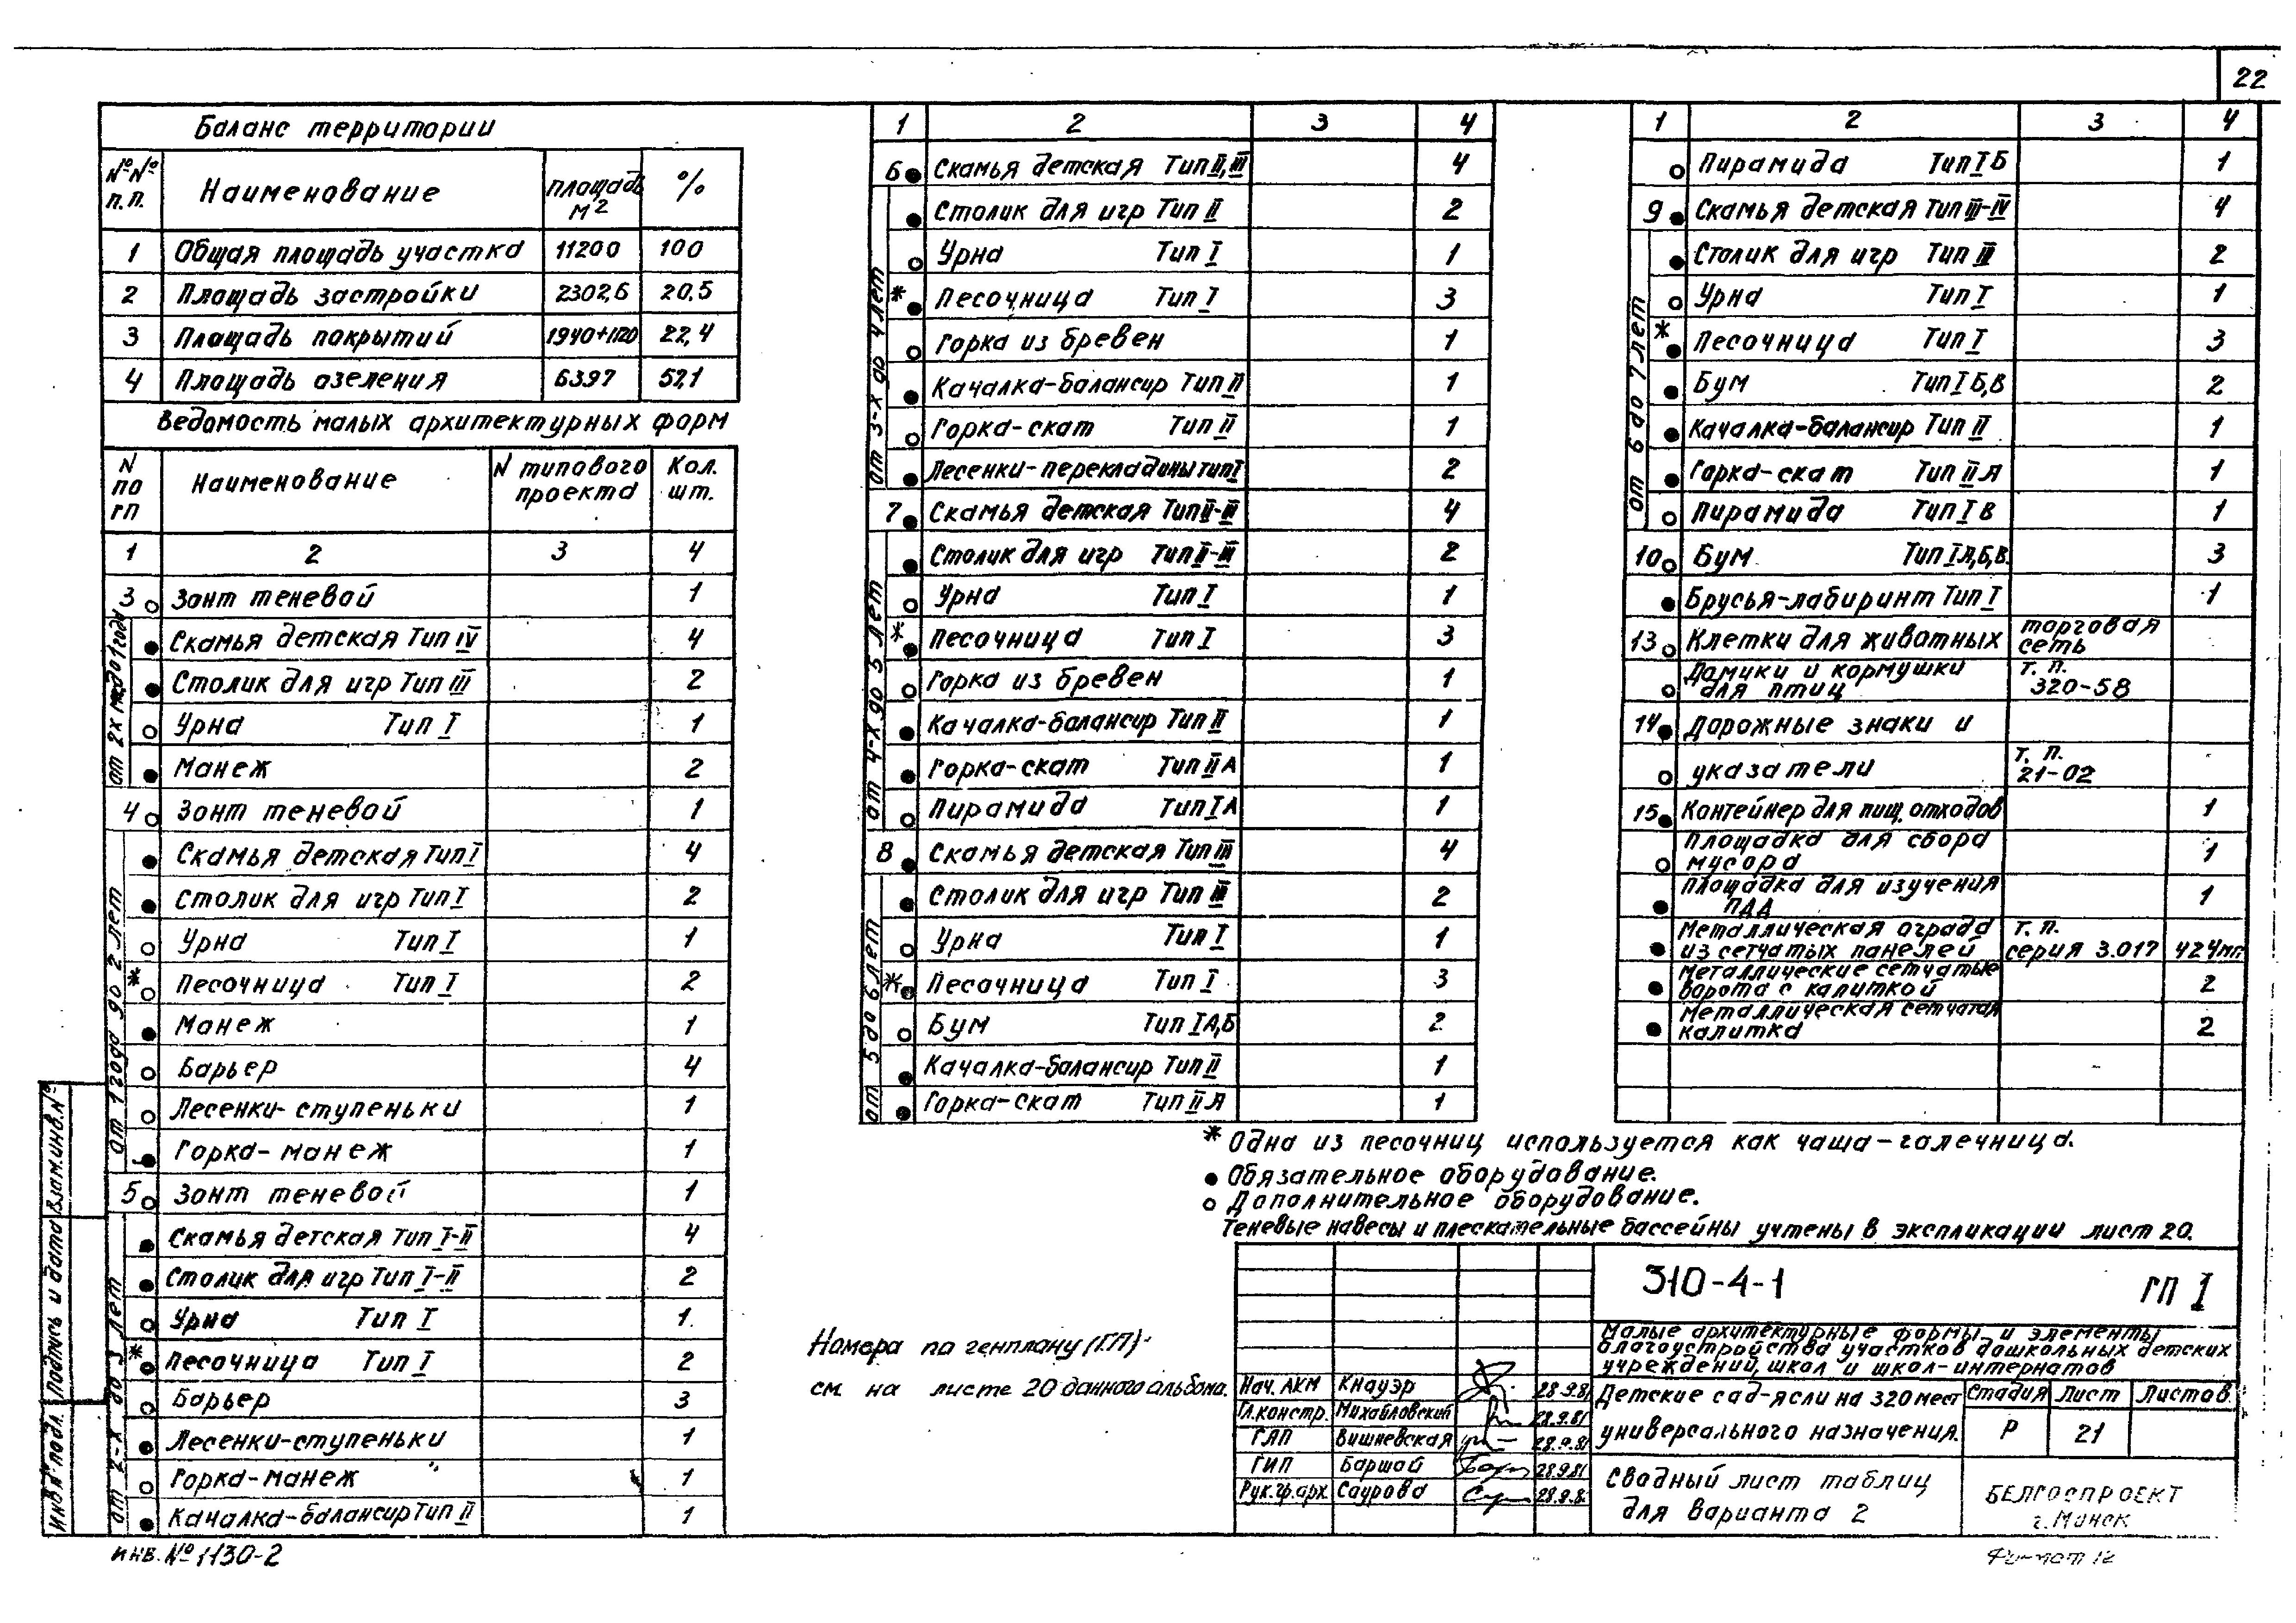 22
Баланс территории
№№ п.п. Наименование площадь м2 %
1 Общая площадь участка 11200 100
2 Площадь застройки 2302,6 20,5
3 Площадь покрытий 1940+1120 22,4
4 Площадь озеленения 6397 57,1
Ведомость малых архитектурных форм
N по гп Наименование N типового проекта Кол. шт.
1 2 3 4
3 ○ Зонт теневой 1
от 2х мес. до 1 года
● Скамья детская Тип IV 4
● Столик для игр Тип III 2
○ Урна Тип I 1
● Манеж 2
4 ○ Зонт теневой 1
от 1 года до 2 лет
● Скамья детская Тип I 4
● Столик для игр Тип I 2
○ Урна Тип I 1
* ○ Песочница Тип I 2
● Манеж 1
○ Барьер 4
○ Лесенки-ступеньки 1
● Горка-манеж 1
5 ○ Зонт теневой 1
от 2-х до 3 лет
● Скамья детская Тип I-II 4
● Столик для игр Тип I-II 2
○ Урна Тип I 1
* ● Песочница Тип I 2
○ Барьер 3
● Лесенки-ступеньки 1
○ Горка-манеж 1
● Качалка-балансир Тип II 1
1 2 3 4
6 ● Скамья детская Тип II, III 4
от 3-х до 4 лет
● Столик для игр Тип II 2
○ Урна Тип I 1
* ● Песочница Тип I 3
○ Горка из бревен 1
● Качалка-балансир Тип II 1
○ Горка-скат Тип II 1
● Лесенки-перекладины тип I 2
7 ● Скамья детская Тип II-III 4
от 4-х до 5 лет
● Столик для игр Тип II-III 2
○ Урна Тип I 1
* ● Песочница Тип I 3
○ Горка из бревен 1
● Качалка-балансир Тип II 1
● Горка-скат Тип II А 1
○ Пирамида Тип I А 1
8 ● Скамья детская Тип III 4
от 5 до 6 лет
● Столик для игр Тип III 2
○ Урна Тип I 1
* ● Песочница Тип I 3
○ Бум Тип I А,Б 2
● Качалка-балансир Тип II 1
● Горка-скат Тип II А 1
1 2 3 4
○ Пирамида Тип I Б 1
9 ● Скамья детская Тип III-IV 4
от 6 до 7 лет
● Столик для игр Тип III 2
○ Урна Тип I 1
* ● Песочница Тип I 3
● Бум Тип I Б,В 2
● Качалка-балансир Тип II 1
● Горка-скат Тип II А 1
○ Пирамида Тип I В 1
10 ○ Бум Тип I А,Б,В. 3
● Брусья-лабиринт Тип I 1
13 ○ Клетки для животных торговая сеть
○ Домики и кормушки для птиц т. п. 320-58
14 ● Дорожные знаки и
○ указатели т. п. 21-02
15 ● Контейнер для пищ. отходов 1
○ Площадка для сбора мусора 1
● Площадка для изучения ПДД 1
● Металлическая ограда из сетчатых панелей т. п. серия 3.017 424мп
● Металлические сетчатые ворота с калиткой 2
● Металлическая сетчатая калитка 2
* Одна из песочниц используется как чаша-галечница.
● Обязательное оборудование.
○ Дополнительное оборудование.
Теневые навесы и плескательные бассейны учтены в экспликации лист 20.
Номера по генплану (ГП)
см. на листе 20 данного альбома.
310-4-1 ГП I
Малые архитектурные формы и элементы
благоустройства участков дошкольных детских
учреждений, школ и школ-интернатов
Нач. АКМ Кнауэр 28.9.81
Гл.констр. Михайловский 28.9.81
ГАП Вишневская 28.9.81
ГИП Баршай 28.9.81
Рук.гр.арх. Саурова 28.9.8
Детские сад-ясли на 320 мест
универсального назначения.
Стадия Лист Листов
Р 21
Сводный лист таблиц
для варианта 2
БЕЛГОСПРОЕКТ
г. Минск
Взам.инв.№
Подпись и дата
Инв.№ подл.
инв. № 1130-2
Формат 12